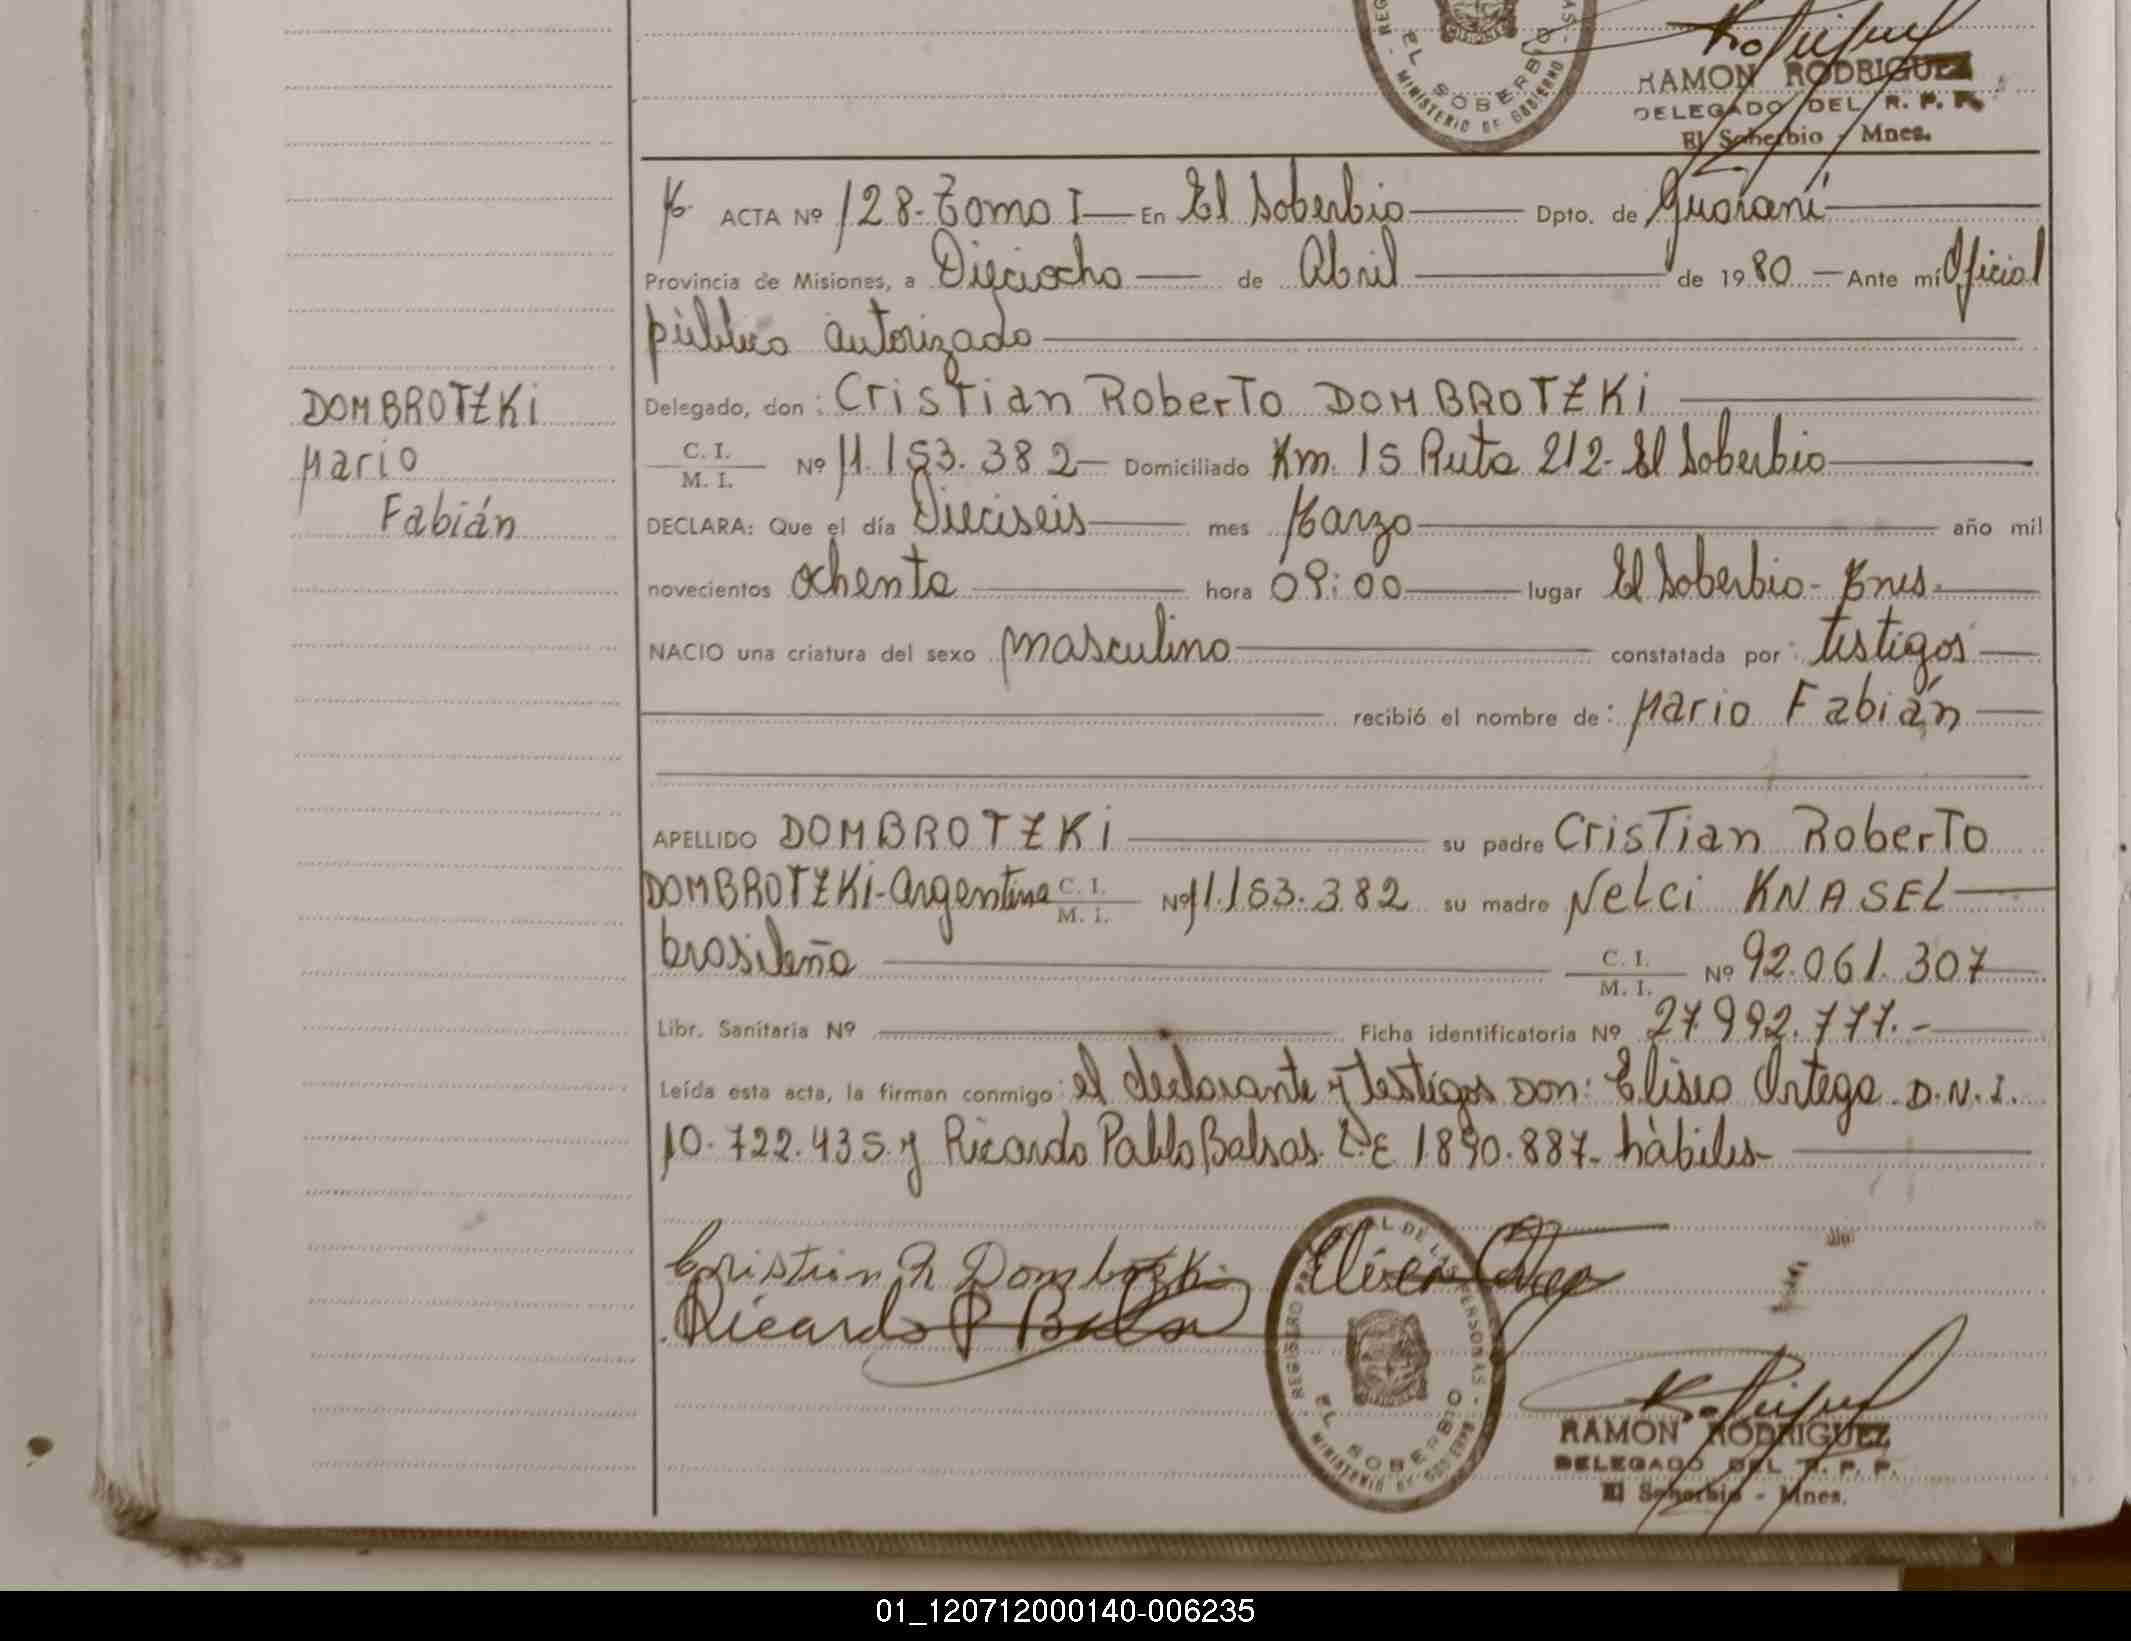 EL SOBERBIO
MINISTERIO DE GOBIERNO
RAMON RODRIGUEZ
DELEGADO DEL R. P. P.
El Soberbio - Mnes.
ACTA Nº 128-Tomo I En El Soberbio Dpto. de Guaraní
Provincia de Misiones, a Dieciocho de Abril de 1980 Ante mí Oficial
público autorizado
DOMBROTZKI
Mario
Fabián
Delegado, don: Cristian Roberto DOMBROTZKI
C. I.
M. I. Nº 11.153.382 Domiciliado Km. 15 Ruta 212- El Soberbio
DECLARA: Que el día Dieciseis mes Marzo año mil
novecientos ochenta hora 09:00 lugar El Soberbio- Mnes.
NACIO una criatura del sexo masculino constatada por: testigos
recibió el nombre de: Mario Fabián
APELLIDO DOMBROTZKI su padre Cristian Roberto
DOMBROTZKI-Argentina C. I. M. I. Nº 11.153.382 su madre Nelci KNASEL
brasileña C. I. M. I. Nº 92.061.307
Libr. Sanitaria Nº Ficha identificatoria Nº 27.992.777.-
Leída esta acta, la firman conmigo: el declarante y testigos Don: Eliseo Ortega D.N.I.
10.722.435 y Ricardo Pablo Balsas. L.E 1.890.887- hábiles-
Cristian R Dombrozki
Eliseo Ortega
Ricardo P Balsa
REGISTRO PROVINCIAL DE LAS PERSONAS
EL SOBERBIO
MINISTERIO DE GOBIERNO
RAMON RODRIGUEZ
DELEGADO DEL R. P. P.
El Soberbio - Mnes.
01_120712000140-006235